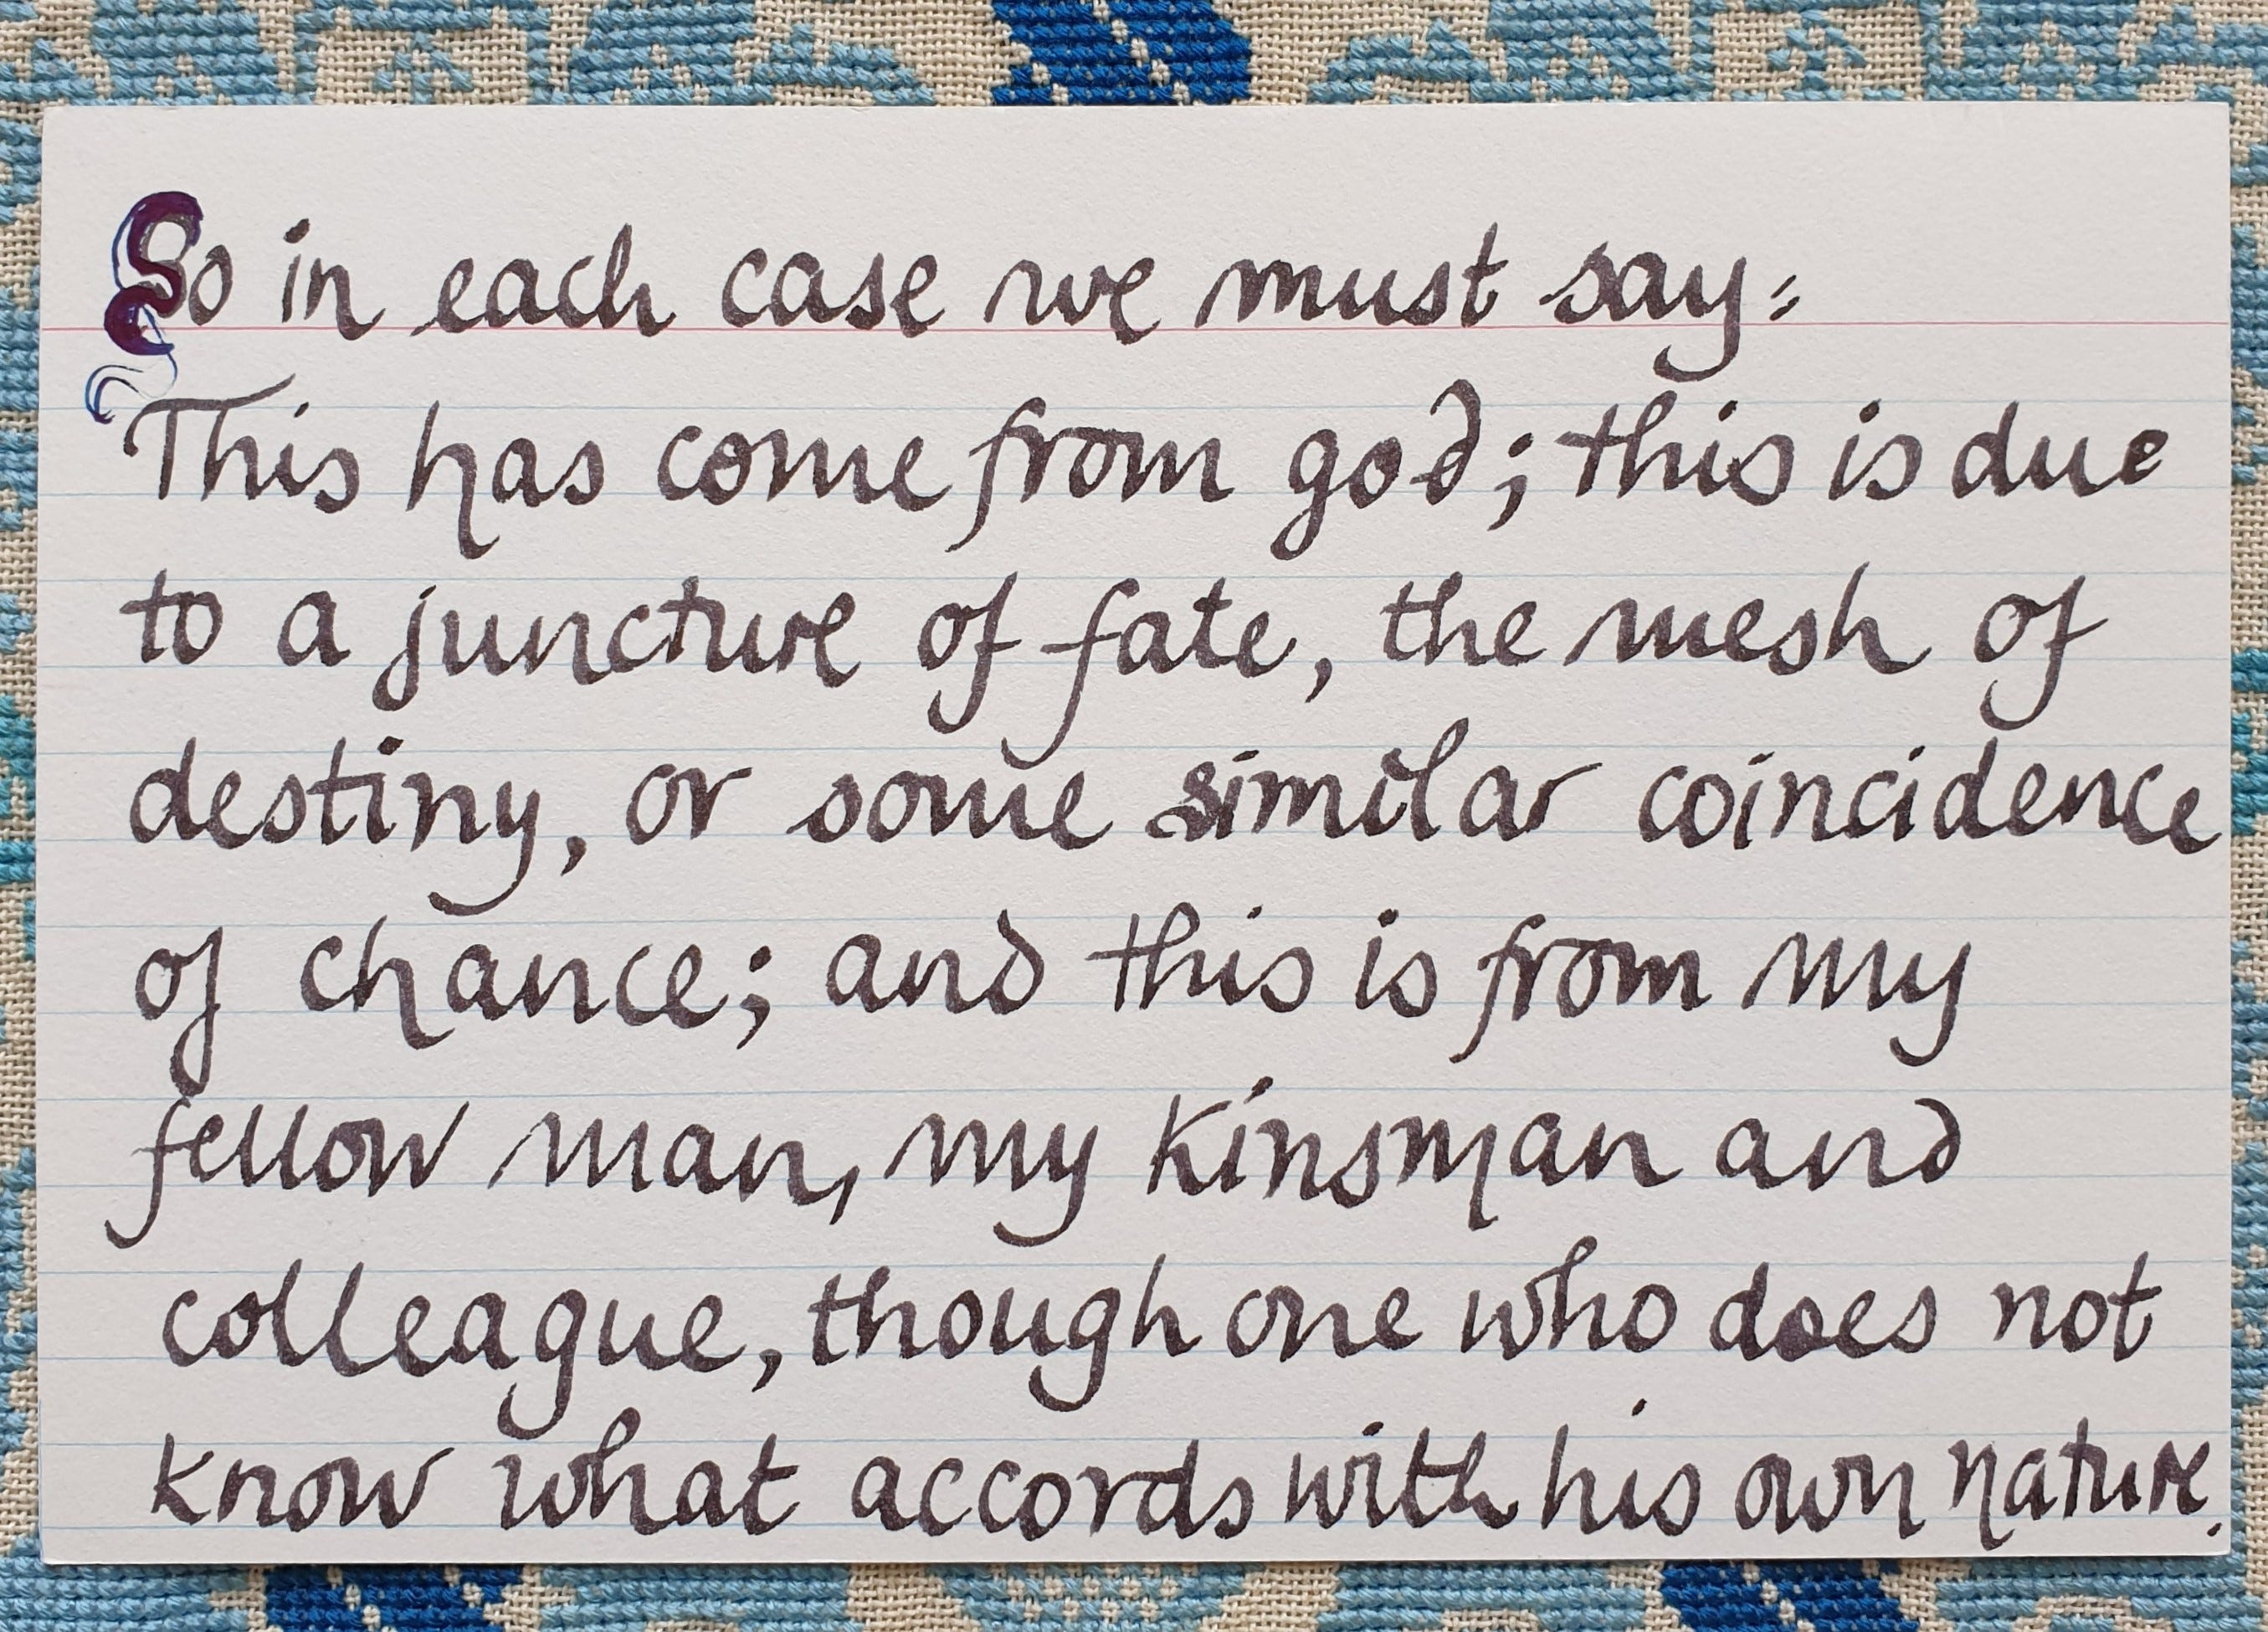 So in each case we must say:
This has come from god; this is due
to a juncture of fate, the mesh of
destiny, or some similar coincidence
of chance; and this is from my
fellow man, my kinsman and
colleague, though one who does not
know what accords with his own nature.